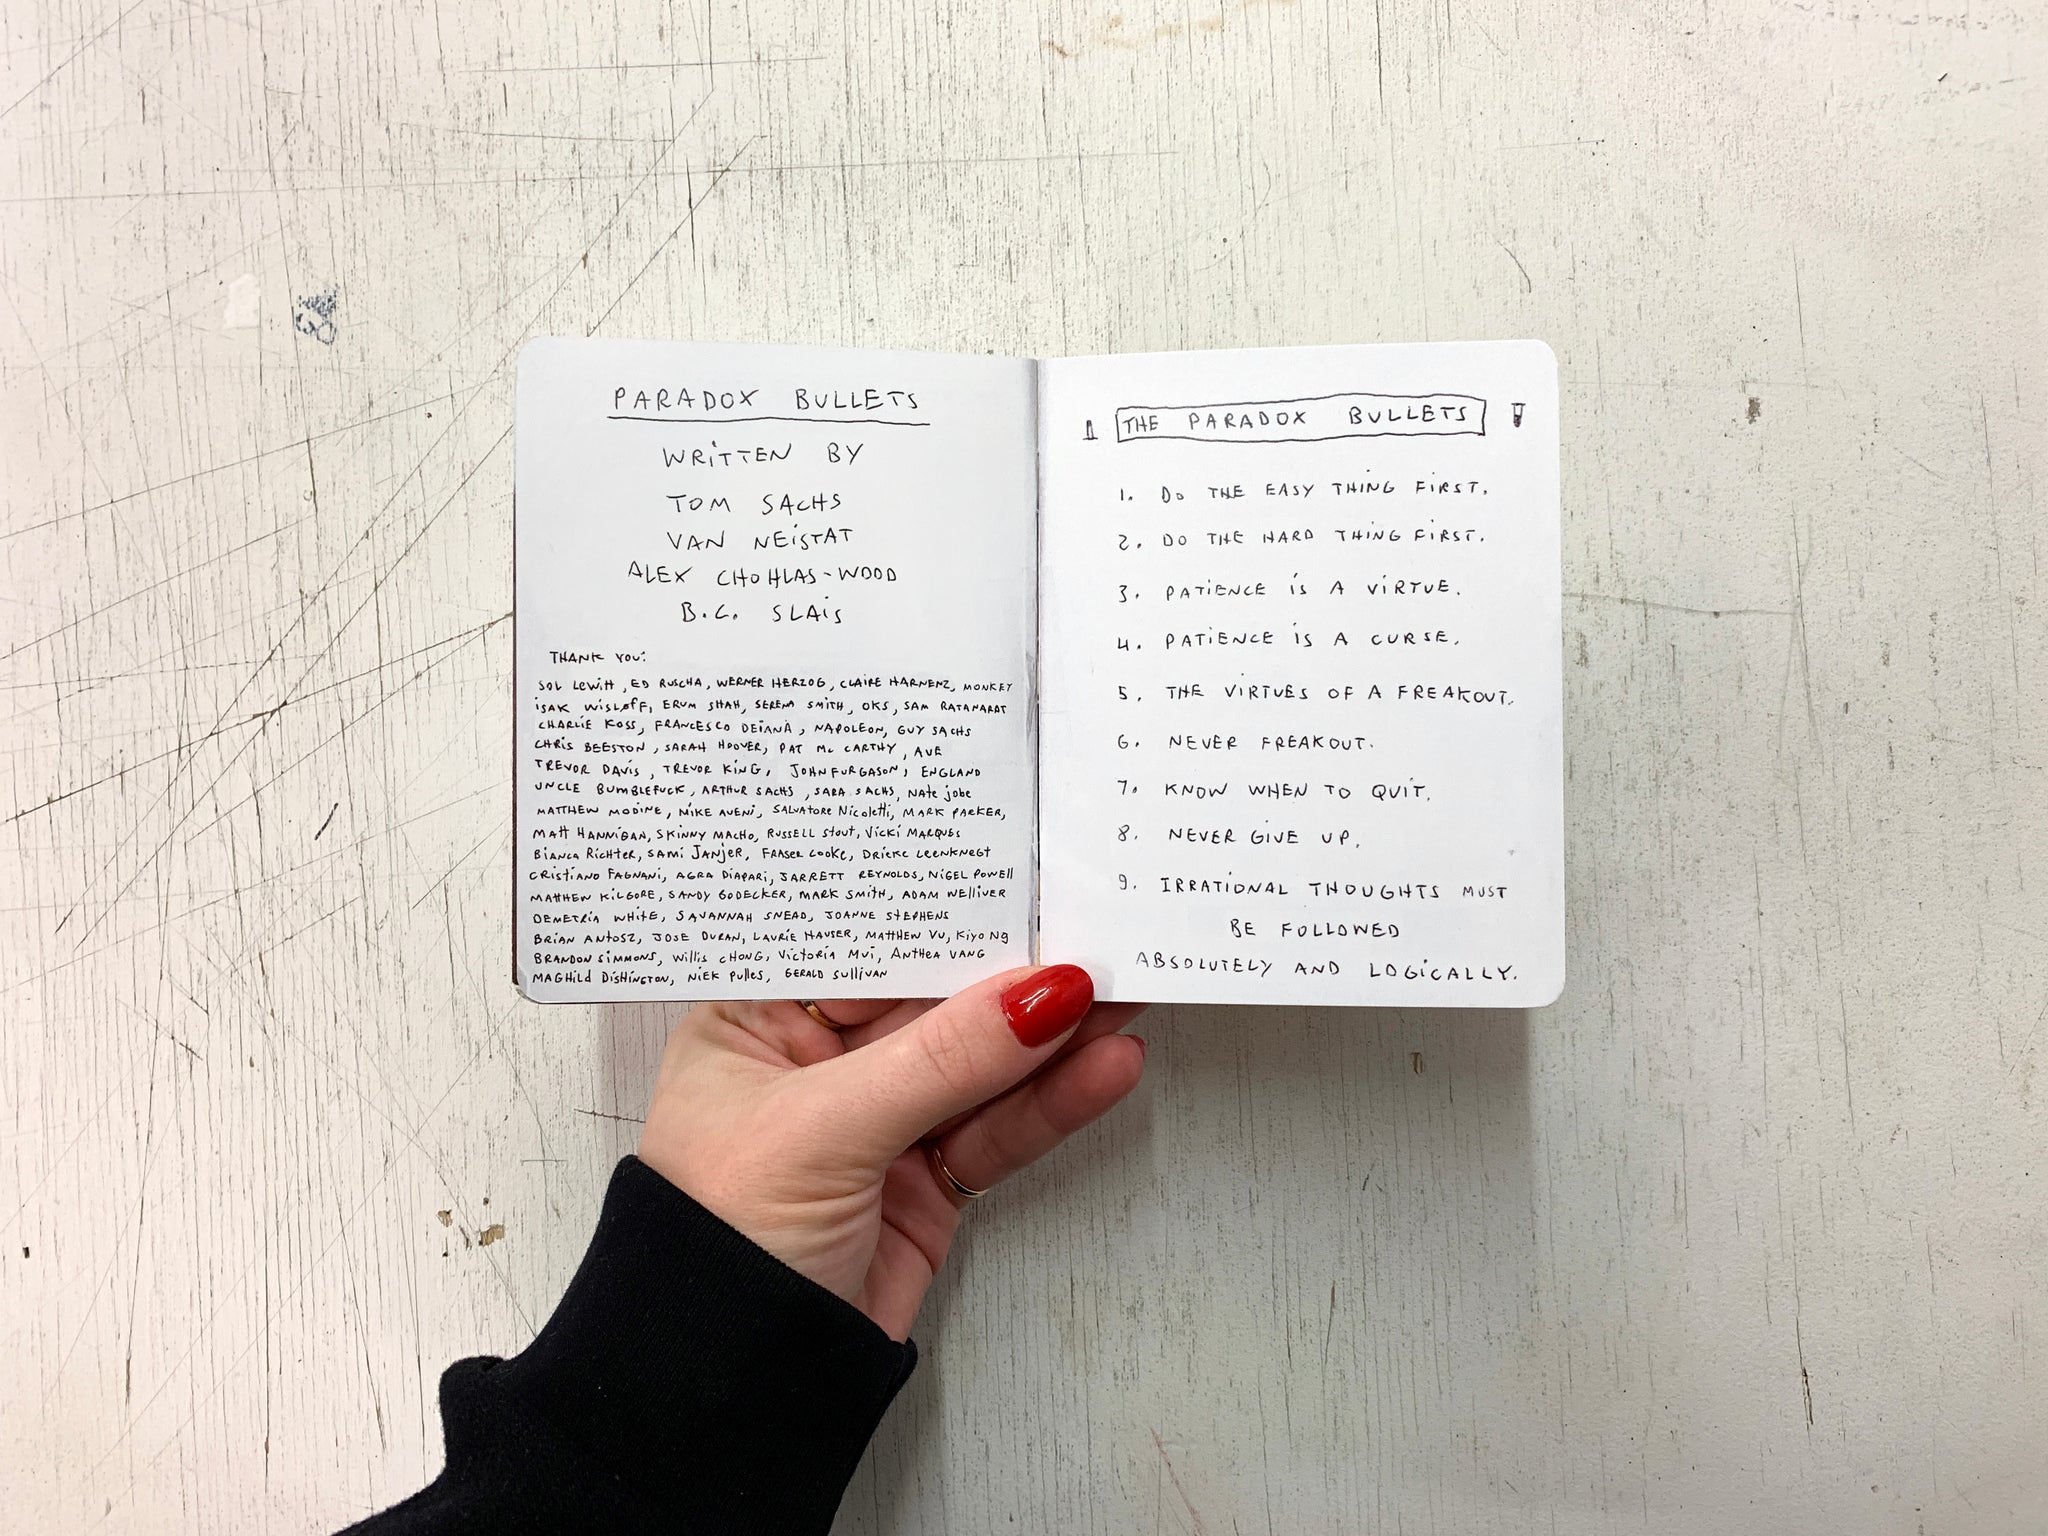 PARADOX BULLETS
WRITTEN BY
TOM SACHS
VAN NEISTAT
ALEX CHOHLAS-WOOD
B.C. SLAIS
THANK YOU:
SOL LEWITT, ED RUSCHA, WERNER HERZOG, CLAIRE HARNENZ, MONKEY
ISAK WISLOFF, ERUM SHAH, SERENA SMITH, OKS, SAM RATANARAT
CHARLIE KOSS, FRANCESCO DEIANA, NAPOLEON, GUY SACHS
CHRIS BEESTON, SARAH HOOVER, PAT MC CARTHY, AVE
TREVOR DAVIS, TREVOR KING, JOHN FURGASON, ENGLAND
UNCLE BUMBLEFUCK, ARTHUR SACHS, SARA SACHS, NATE JOBE
MATTHEW MODINE, NIKE AUENI, SALVATORE NICOLETTI, MARK PARKER,
MATT HANNIGAN, SKINNY MACHO, RUSSELL STOUT, VICKI MARQUES
BIANCA RICHTER, SAMI JANJER, FRASER COOKE, DRIEKE LEENKNEGT
CRISTIANO FAGNANI, AGRA DIAPARI, JARRETT REYNOLDS, NIGEL POWELL
MATTHEW KILGORE, SANDY BODECKER, MARK SMITH, ADAM WELLIVER
DEMETRIA WHITE, SAVANNAH SNEAD, JOANNE STEPHENS
BRIAN ANTOSZ, JOSE DURAN, LAURIE HAUSER, MATTHEW VU, KIYO NG
BRANDON SIMMONS, WILLIS CHONG, VICTORIA MUI, ANTHEA VANG
MAGHILD DISHINGTON, NIEK PULLES, GERALD SULLIVAN
THE PARADOX BULLETS
1. DO THE EASY THING FIRST.
2. DO THE HARD THING FIRST.
3. PATIENCE IS A VIRTUE.
4. PATIENCE IS A CURSE.
5. THE VIRTUES OF A FREAKOUT.
6. NEVER FREAKOUT.
7. KNOW WHEN TO QUIT.
8. NEVER GIVE UP.
9. IRRATIONAL THOUGHTS MUST
BE FOLLOWED
ABSOLUTELY AND LOGICALLY.